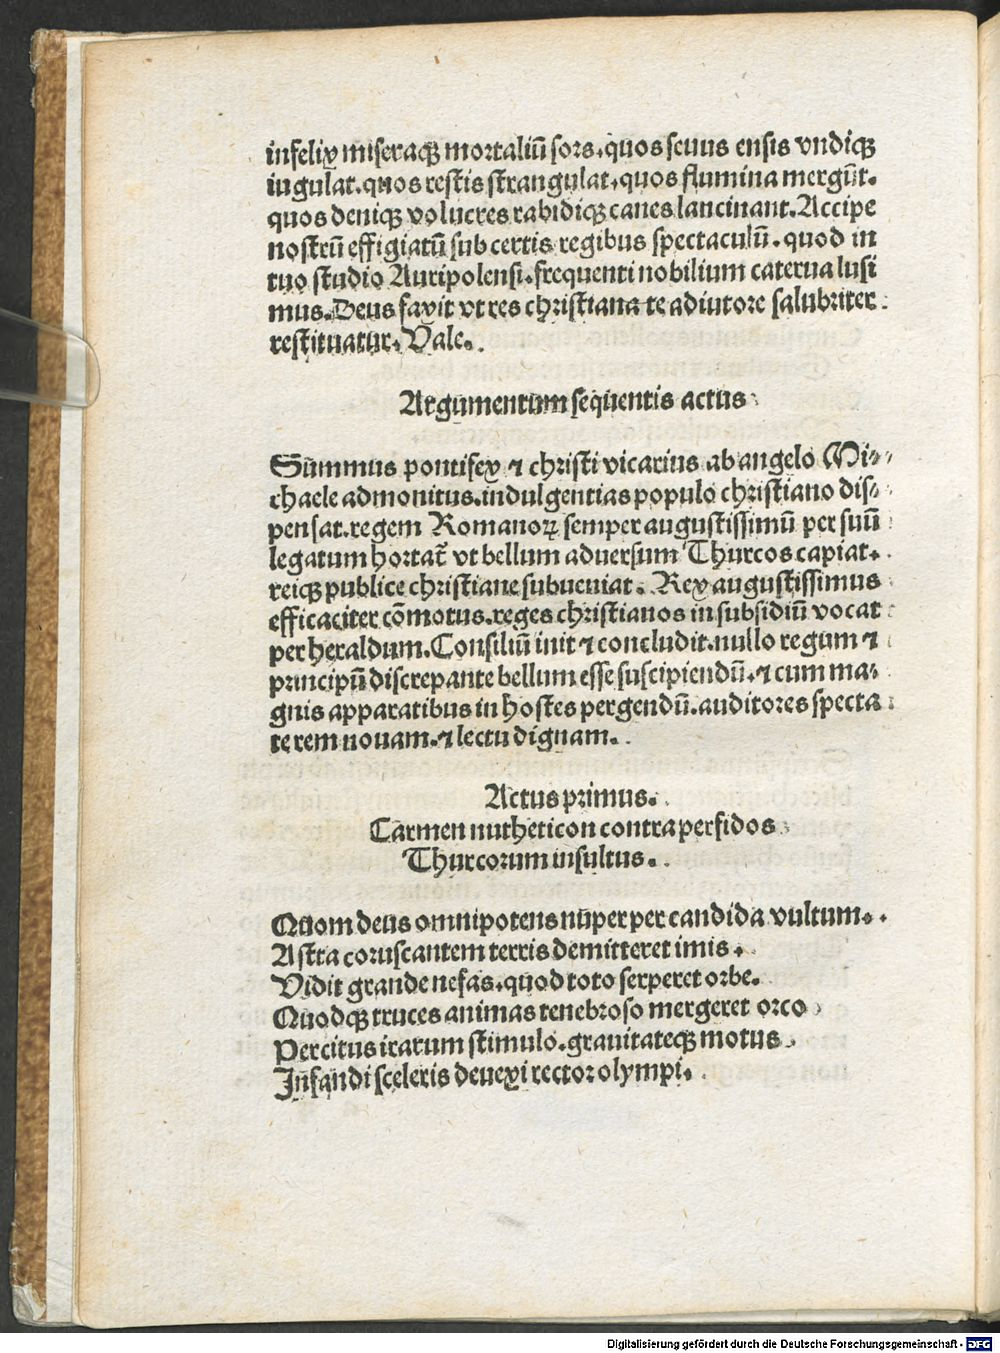 infelix miseraqꝫ mortaliū sors. quos seuus ensis vndiqꝫ
iugulat. quos restis strangulat. quos flumina mergūt.
quos deniqꝫ volucres rabidiqꝫ canes lancinant. Accipe
nostrū effigiatū sub certis regibus spectaculū. quod in
tuo studio Auripolensi. frequenti nobilium caterua lusi
mus. Deus faxit vt res christiana te adiutore salubriter
restituatur. Vale.
Argumentum sequentis actus
Summus pontifex ⁊ christi vicarius ab angelo Mi⸗
chaele admonitus. indulgentias populo christiano dis⸗
pensat. regem Romanoꝝ semper augustissimū per suū
legatum hortat᷑ vt bellum aduersum Thurcos capiat.
reiqꝫ publice christiane subueniat. Rex augustissimus
efficaciter cōmotus. reges christianos in subsidiū vocat
per heraldum. Consiliū init ⁊ concludit. nullo regum ⁊
principū discrepante bellum esse suscipiendū. ⁊ cum ma⸗
gnis apparatibus in hostes pergendū. auditores specta
te rem nouam. ⁊ lectu dignam.
Actus primus.
Carmen nutheticon contra perfidos
Thurcorum insultus.
Quom deus omnipotens nuper per candida vultum.
Astra coruscantem terris demitteret imis.
Vidit grande nefas. quod toto serperet orbe.
Quodqꝫ truces animas tenebroso mergeret orco
Percitus irarum stimulo. grauitateqꝫ motus
Infandi sceleris deuexi rector olympi.
Digitalisierung gefördert durch die Deutsche Forschungsgemeinschaft - DFG